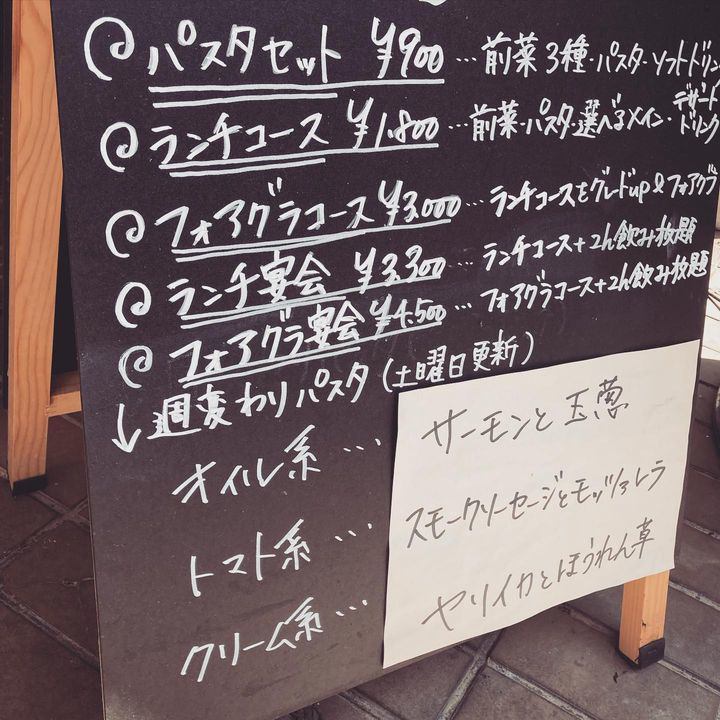 パスタセット ¥900 … 前菜3種・パスタ・ソフトドリン
ランチコース ¥1,800 … 前菜・パスタ・選べるメイン・デザート ドリンク
フォアグラコース ¥3,000 … ランチコースをグレードup & フォアグラ
ランチ宴会 ¥3,300 … ランチコース+2h飲み放題
フォアグラ宴会 ¥4,500 … フォアグラコース+2h飲み放題
↓週変わりパスタ(土曜日更新)
オイル系… サーモンと玉葱
トマト系… スモークソーセージとモッツァレラ
クリーム系… ヤリイカとほうれん草